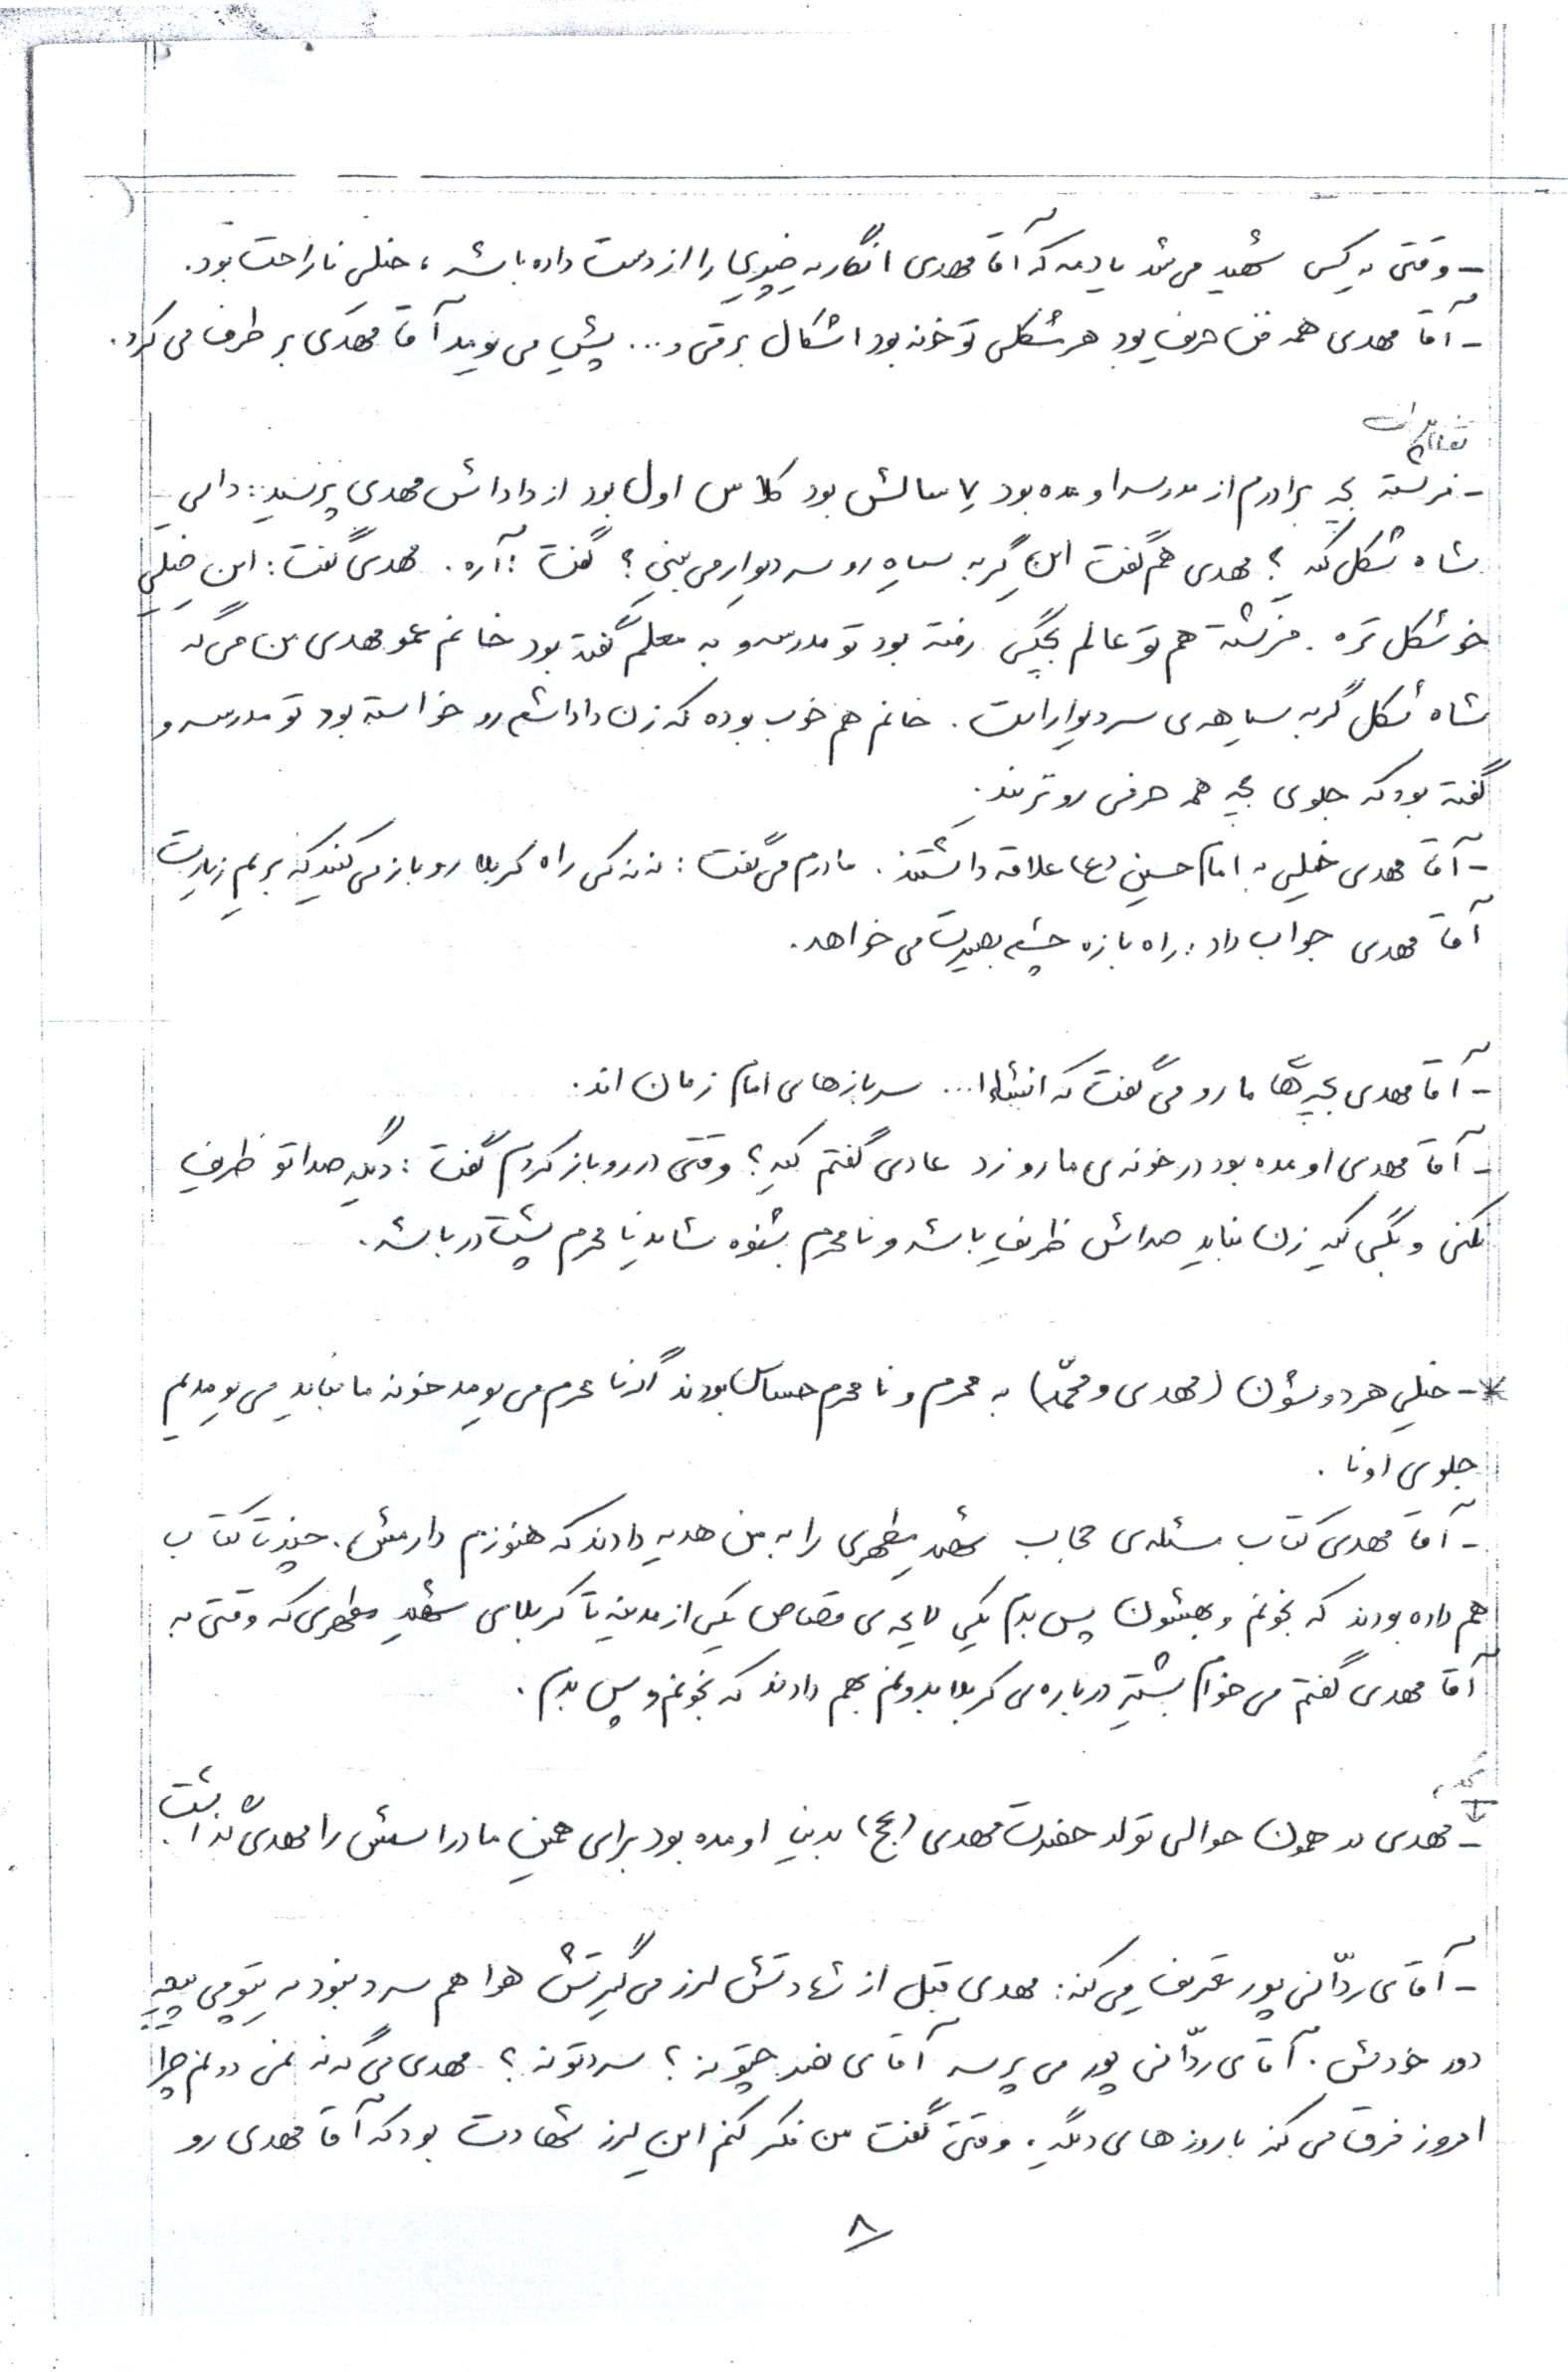 - وقتی یه کسی شهید می شد یادمه که آقا مهدی انگار یه چیزی را از دست داده باشه ، خیلی ناراحت بود.
- آقا مهدی همه فن حریف بود هر مشکلی تو خونه بود اشکال برقی و... پیش می یومد آقا مهدی بر طرف می کرد.
- فرشته بچه برادرم از مدرسه اومده بود ۷ سالش بود کلاس اول بود از داداش مهدی پرسید: دایی
شاه شکل کیه ؟ مهدی هم گفت این گربه سیاه رو سر دیوار می بینی ؟ گفت : آره . مهدی گفت : این خیلی
خوشکل تره . فرشته هم تو عالم بچگی رفته بود تو مدرسه و به معلم گفته بود خانم عمو مهدی من می گه
شاه شکل گربه سیاهه ی سر دیوار است . خانم هم خوب بوده که زن داداشم رو خواسته بود تو مدرسه و
گفته بود که جلوی بچه همه حرفی رو نزنید.
- آقا مهدی خیلی به امام حسین (ع) علاقه داشتند . مادرم می گفت : ننه کی راه کربلا رو باز می کنید که بریم زیارت
آقا مهدی جواب داد : راه بازه چشم بصیرت می خواهد.
- آقا مهدی بچه های ما رو می گفت که انشاا... سربازهای امام زمان اند.
- آقا مهدی اومده بود در خونه ی ما رو زد عادی گفتم کیه ؟ وقتی در رو باز کردم گفت : دیگه صداتو ظریف
نکنی و بگی کیه زن نباید صداش ظریف باشه و نامحرم بشنوه شاید نامحرم پشت در باشه .
* - خیلی هر دوشون (مهدی و محمّد) به محرم و نامحرم حساس بودند اگر نامحرم می یومد خونه ما نباید می یومدیم
جلوی اونا .
- آقا مهدی کتاب مسئله ی حجاب شهید مطهری را به من هدیه دادند که هنوزم دارمش . چند تا کتاب
هم داده بودند که بخونم و بهشون پس بدم یکی لایحه ی قصاص یکی از مدینه تا کربلای شهید مطهری که وقتی به
آقا مهدی گفتم می خوام بیشتر درباره ی کربلا بدونم بهم دادند که بخونم و پس بدم .
- مهدی در همون حوالی تولد حضرت مهدی (عج) بدنیا اومده بود برای همین مادر اسمش را مهدی گذاشت.
- آقای ردّانی پور تعریف می کنه : مهدی قبل از شهادتش لرز می گیرتش هوا هم سرد نبود یه پتو می پیچه
دور خودش . آقای ردّانی پور می پرسه آقای نصر چتونه ؟ سردتونه ؟ مهدی می گه نه نمی دونم چرا
امروز فرق می کنه با روزهای دیگه . وقتی گفت من فکر کنم این لرز شهادت بود که آقا مهدی رو
۸